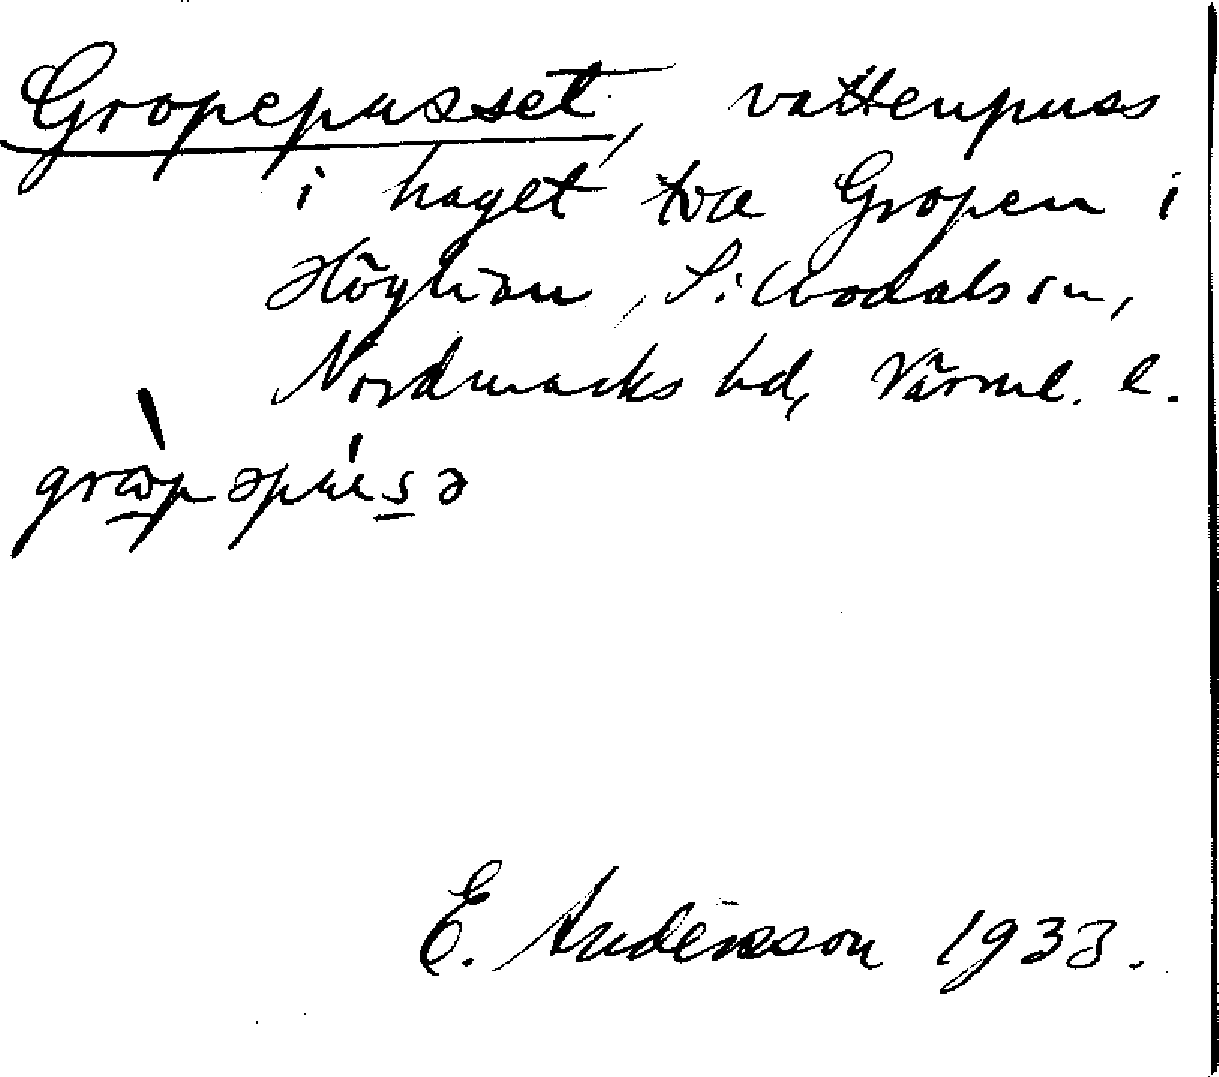 Gropepusset, vattenpuss
i haget tva Gropen i
Höglian, Silbodals sn,
Nordmarks hd, Värml. l.
E. Andersson 1933.